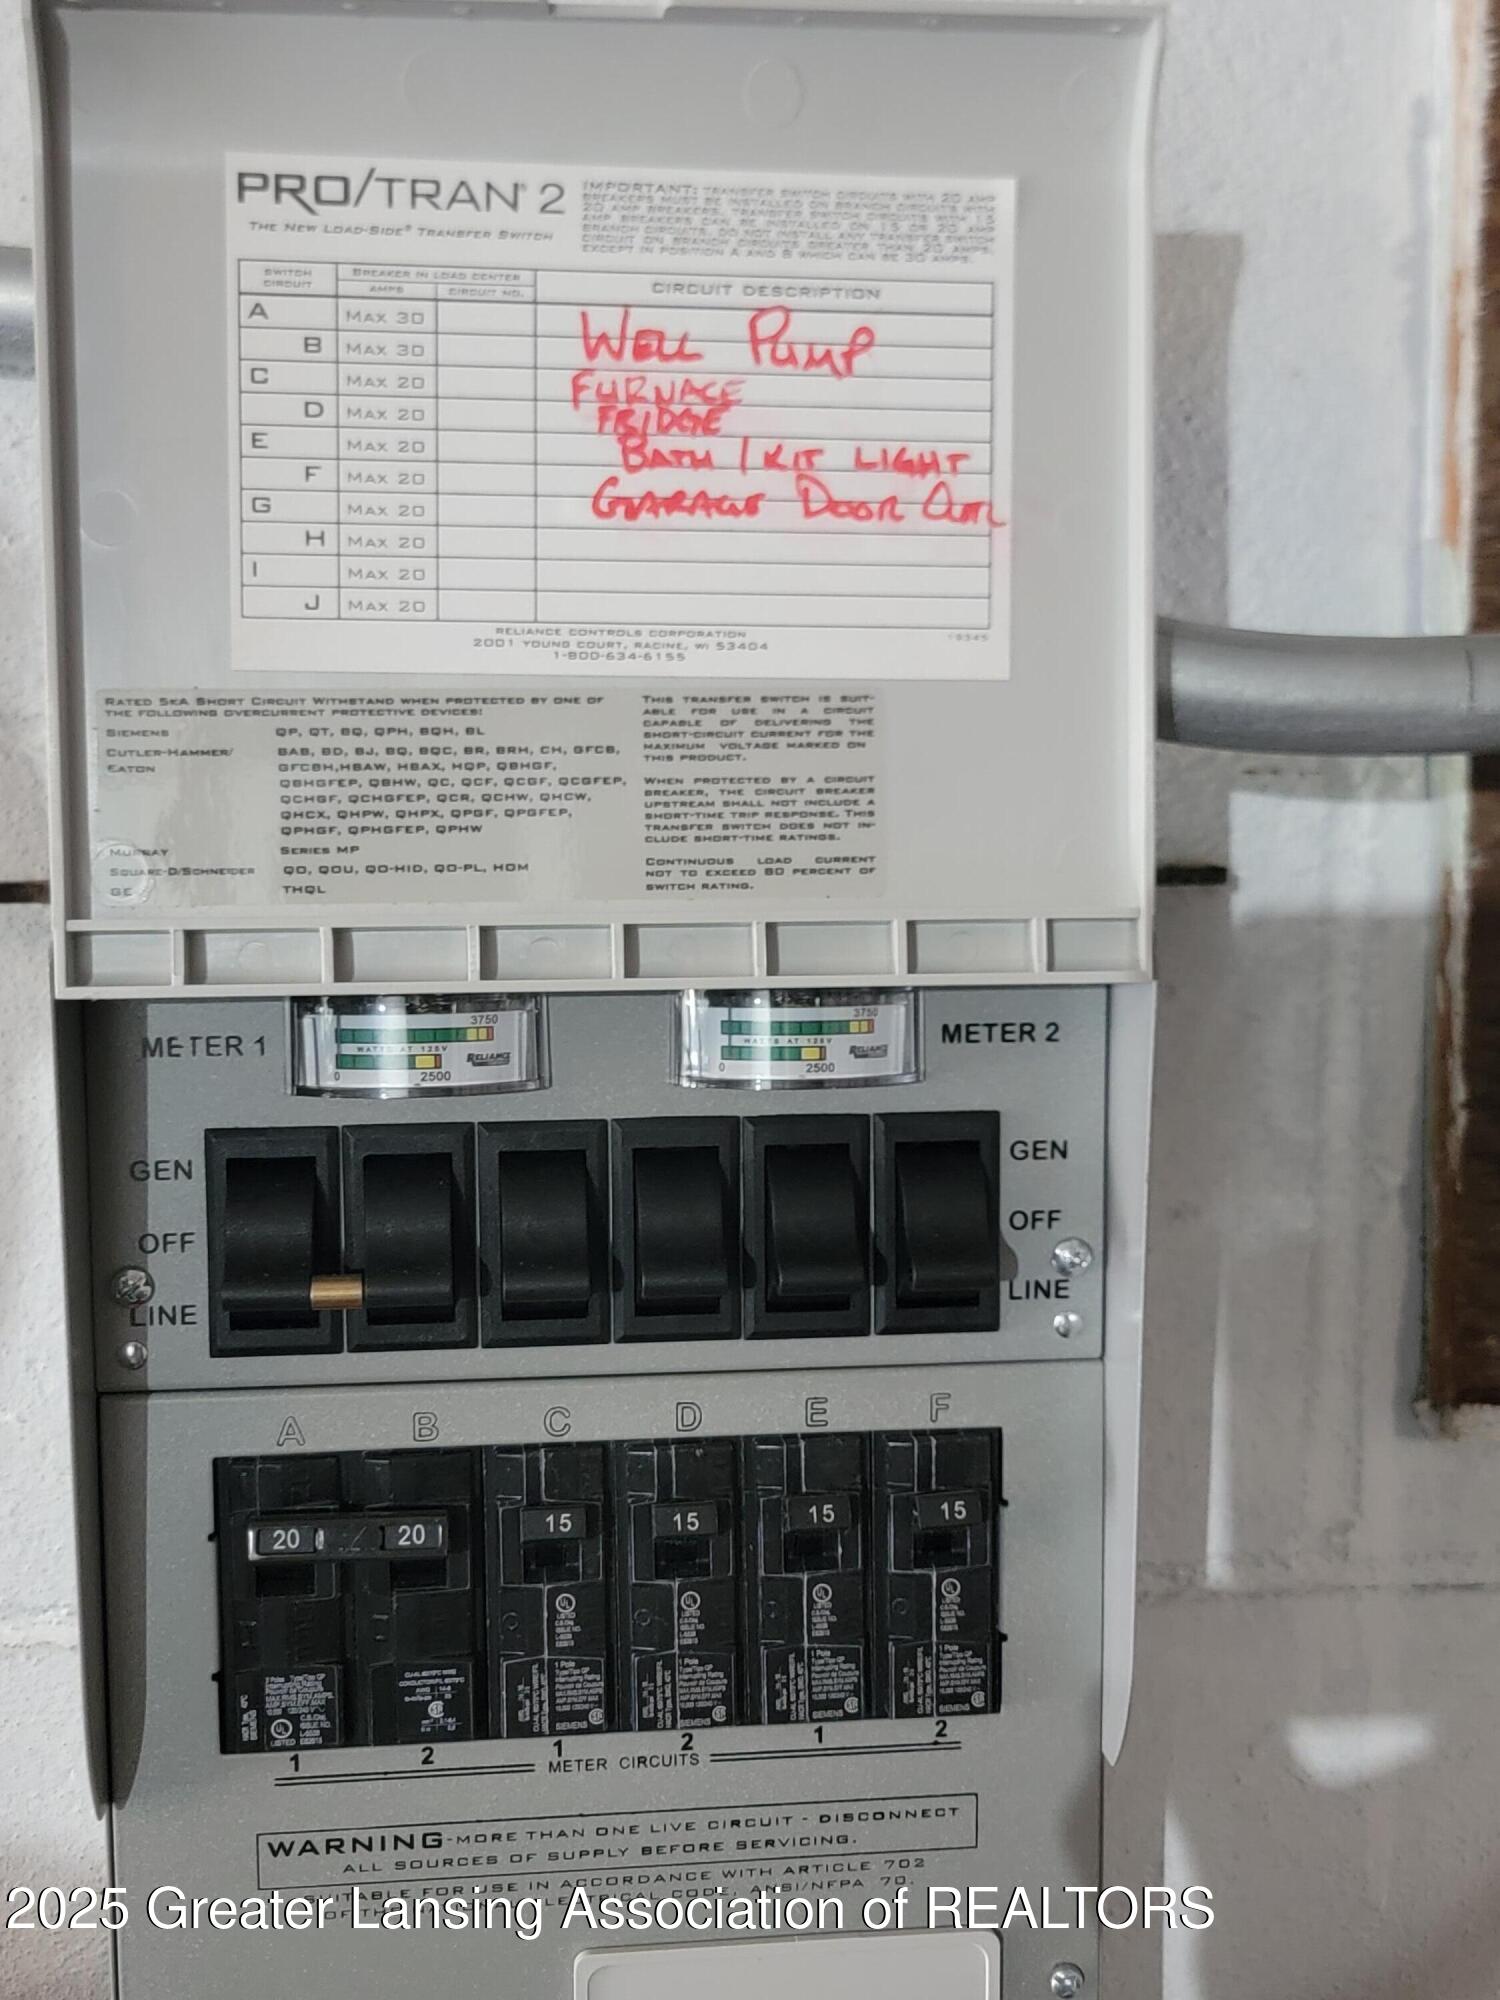 PRO/TRAN® 2
THE NEW LOAD-SIDE® TRANSFER SWITCH
IMPORTANT: TRANSFER SWITCH CIRCUITS WITH 20 AMP
BREAKERS MUST BE INSTALLED ON BRANCH CIRCUITS WITH
20 AMP BREAKERS. TRANSFER SWITCH CIRCUITS WITH 15
AMP BREAKERS CAN BE INSTALLED ON 15 OR 20 AMP
BRANCH CIRCUITS. DO NOT INSTALL ANY TRANSFER SWITCH
CIRCUIT ON BRANCH CIRCUITS GREATER THAN 20 AMPS,
EXCEPT IN POSITION A AND B WHICH CAN BE 30 AMPS.
SWITCH CIRCUIT
BREAKER IN LOAD CENTER
AMPS
CIRCUIT NO.
CIRCUIT DESCRIPTION
A MAX 30
B MAX 30
WELL PUMP
C MAX 20 FURNACE
D MAX 20 FRIDGE
E MAX 20 BATH / KIT LIGHT
F MAX 20
G MAX 20 GARAGE DOOR
H MAX 20
I MAX 20
J MAX 20
RELIANCE CONTROLS CORPORATION
2001 YOUNG COURT, RACINE, WI 53404
1-800-634-6155
RATED 5KA SHORT CIRCUIT WITHSTAND WHEN PROTECTED BY ONE OF
THE FOLLOWING OVERCURRENT PROTECTIVE DEVICES:
SIEMENS QP, QT, BQ, QPH, BQH, BL
CUTLER-HAMMER/ EATON BAB, BD, BJ, BQ, BQC, BR, BRH, CH, GFCB,
GFCBH,HBAW, HBAX, HQP, QBHGF,
QBHGFEP, QBHW, QC, QCF, QCGF, QCGFEP,
QCHGF, QCHGFEP, QCR, QCHW, QHCW,
QHCX, QHPW, QHPX, QPGF, QPGFEP,
QPHGF, QPHGFEP, QPHW
MURRAY SERIES MP
SQUARE-D/SCHNEIDER QO, QOU, QO-HID, QO-PL, HOM
GE THQL
THIS TRANSFER SWITCH IS SUIT-
ABLE FOR USE IN A CIRCUIT
CAPABLE OF DELIVERING THE
SHORT-CIRCUIT CURRENT FOR THE
MAXIMUM VOLTAGE MARKED ON
THIS PRODUCT.
WHEN PROTECTED BY A CIRCUIT
BREAKER, THE CIRCUIT BREAKER
UPSTREAM SHALL NOT INCLUDE A
SHORT-TIME TRIP RESPONSE. THIS
TRANSFER SWITCH DOES NOT IN-
CLUDE SHORT-TIME RATINGS.
CONTINUOUS LOAD CURRENT
NOT TO EXCEED 80 PERCENT OF
SWITCH RATING.
METER 1
3750
WATTS AT 125V
RELIANCE
0 2500
3750
WATTS AT 125V
RELIANCE
0 2500
METER 2
GEN
OFF
LINE
GEN
OFF
LINE
A B C D E F
20 20 15 15 15 15
SIEMENS
1 2 1 2 1 2
METER CIRCUITS
WARNING-MORE THAN ONE LIVE CIRCUIT - DISCONNECT
ALL SOURCES OF SUPPLY BEFORE SERVICING.
SUITABLE FOR USE IN ACCORDANCE WITH ARTICLE 702
OF THE NATIONAL ELECTRICAL CODE, ANSI/NFPA 70.
2025 Greater Lansing Association of REALTORS